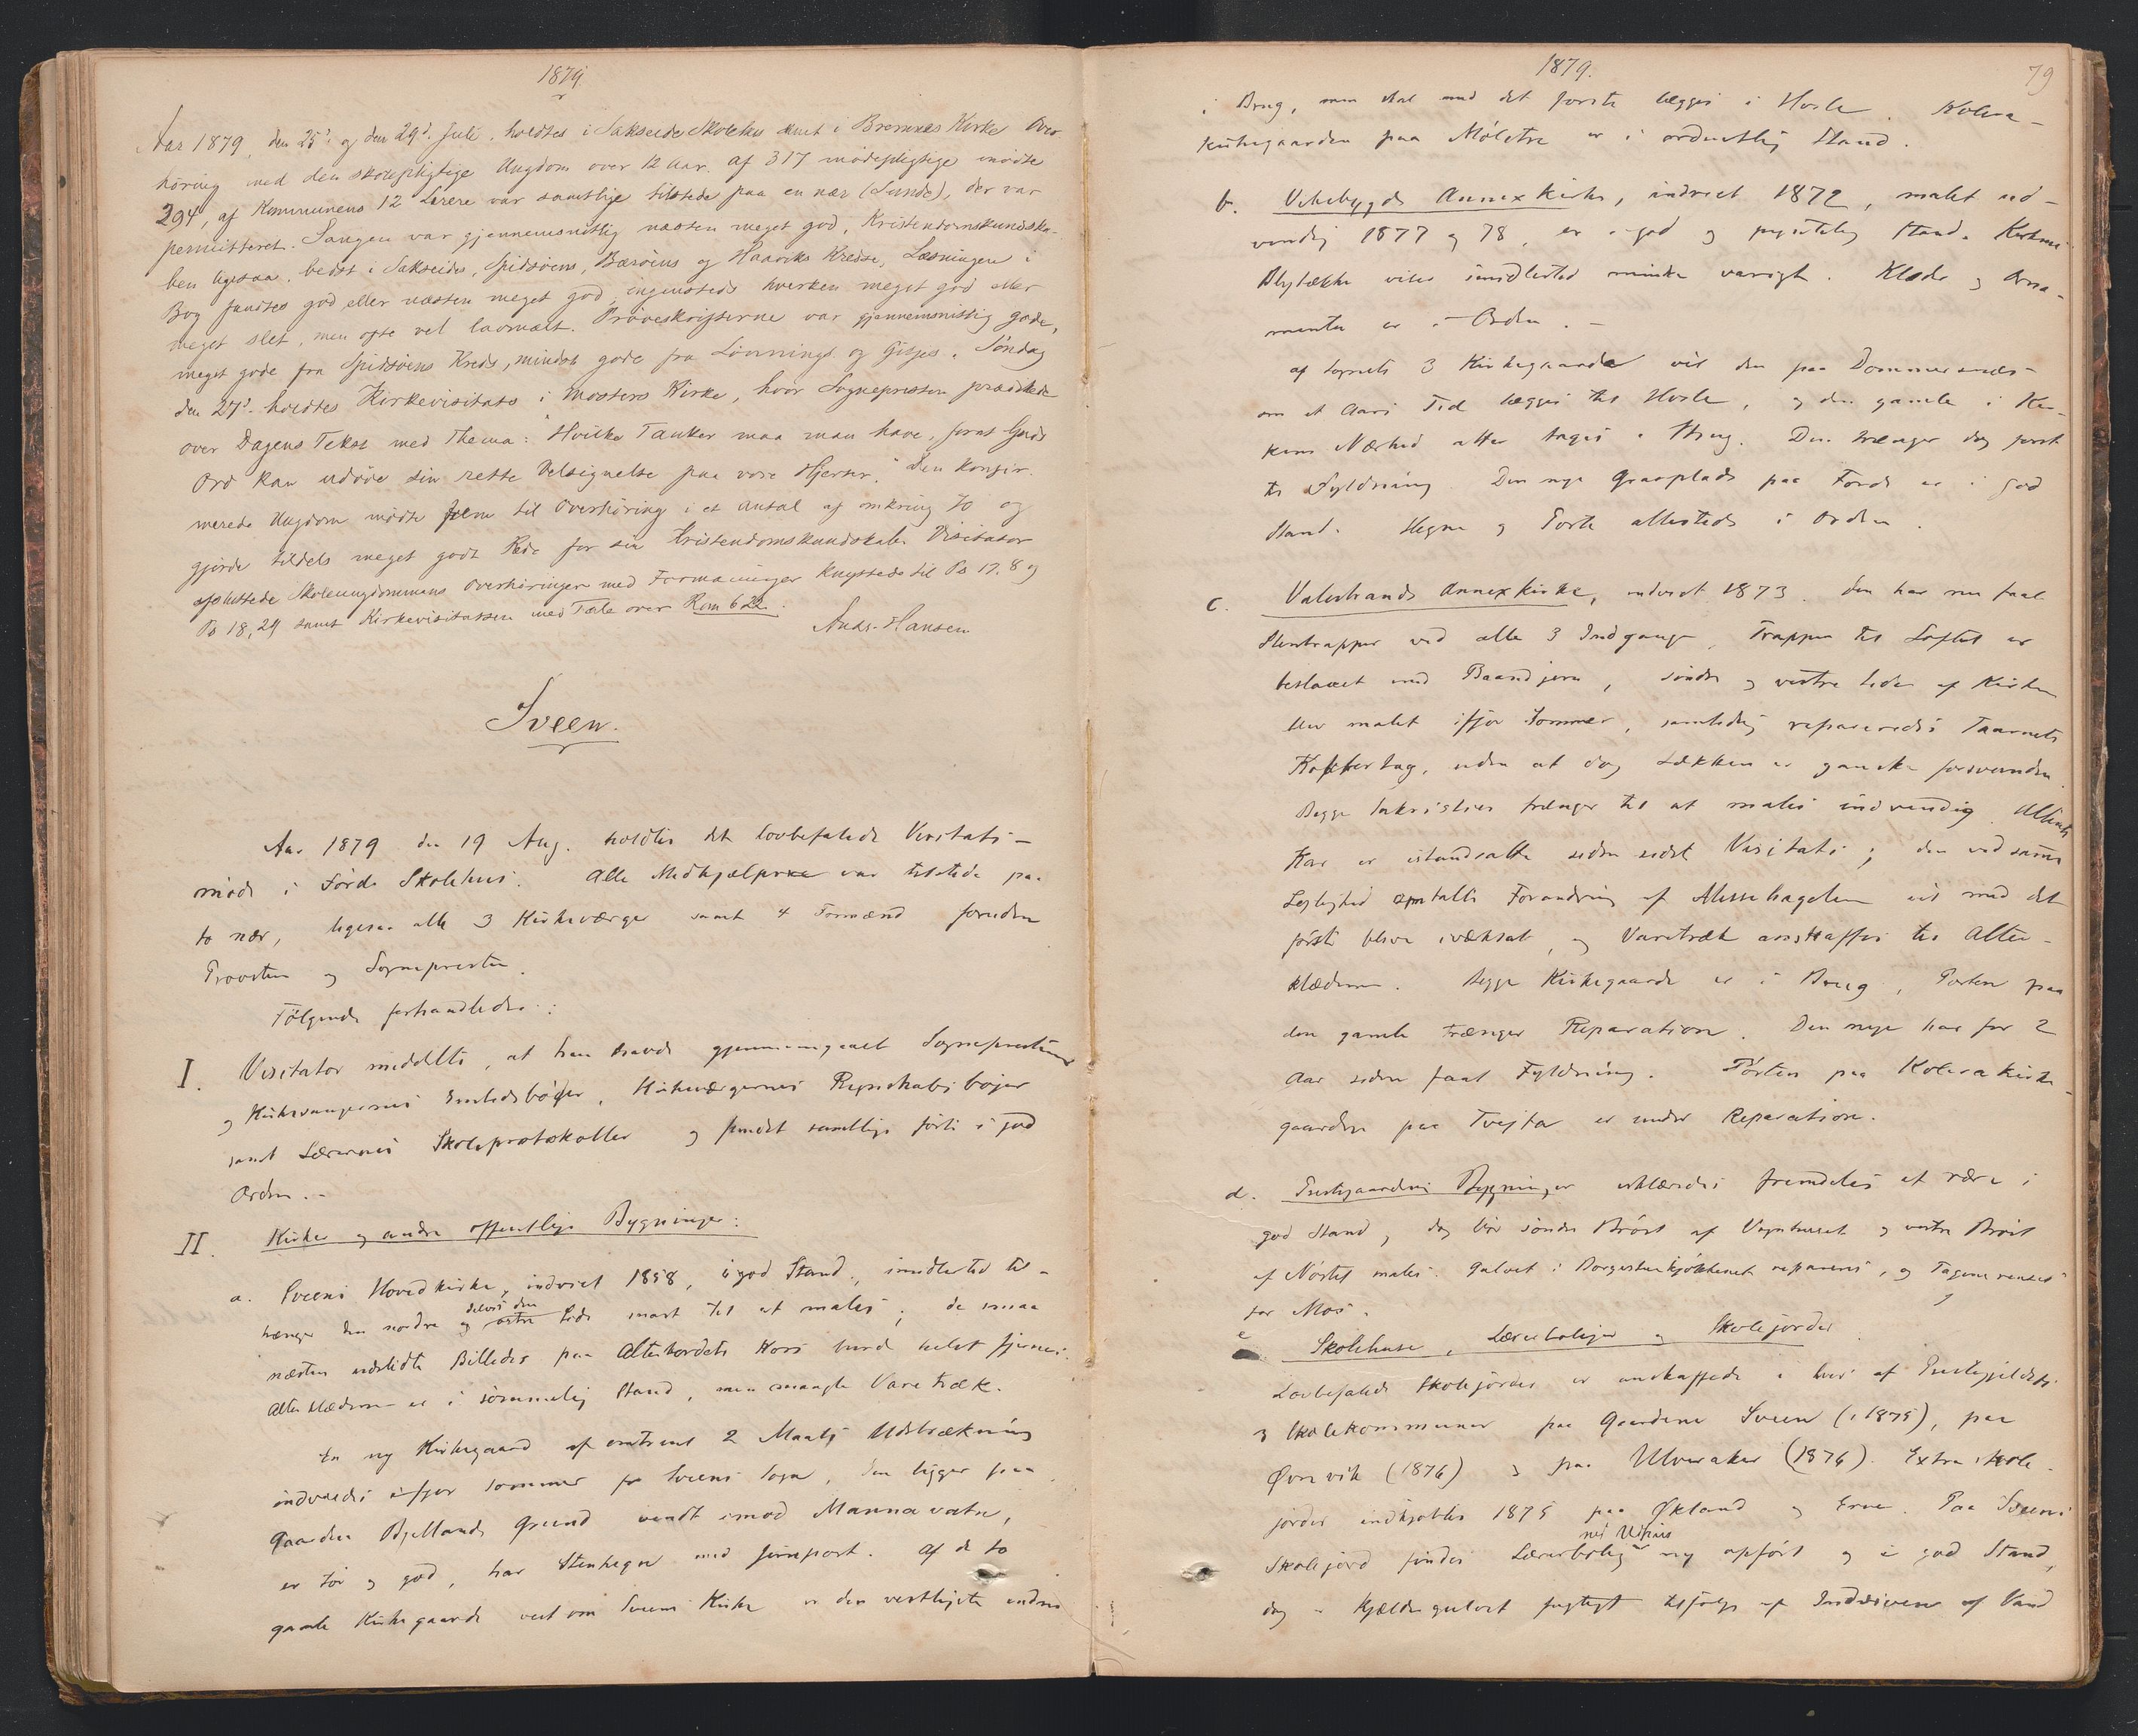 1879.
Aar 1879, den 25de og den 29de Juli, holdtes i Sakseide Skolehus samt i Bremnes Kirke Over-
høring med den skolepligtige Ungdom over 12 Aar. Af 317 mødepligtige mødte
294, af Kommunens 12 Lærere var samtlige tilstede paa en nær (Lunde), der var
permitteret. Sangen var gjennemsnitlig næsten meget god, Kristendomskundska-
ben ligesaa, bedst i Sakseides, Spidsøens, Bærøens og Haaviks Kredse, Læsningen i
Bog fandtes god eller næsten meget god, ingensteds hverken meget god eller
meget slet, men ofte vel lavmælt. Prøveskrifterne var gjennemsnitlig gode,
meget gode fra Spidsøens Kreds, mindst gode fra Lønnings og Gisjes. Søndag
den 27de holdtes Kirkevisitats i Mosters Kirke, hvor Sognepresten prædikede
over Dagens Tekst med Thema: "Hvilke Tanker maa man have, forat Guds
Ord kan udøve sin rette Velsignelse paa vore Hjerter." Den konfir-
merede Ungdom mødte frem til Overhøring i et Antal af omkring 70 og
gjorde tildels meget godt Rede for sin Kristendomskundskab. Visitator
afsluttede Skoleungdommens Overhøringer med Formaninger knyttede til Ps 17.8 og
Ps 18,29 samt Kirkevisitatsen med Tale over Rom 6 22.
Ands. Hansen
Sveen.
Aar 1879 den 19 Aug. holdtes det lovbefalede Visitats-
møde i Førde Skolehus. Alle Medhjælpere var tilstede paa
to nær, ligesaa alle 3 Kirkeværger samt 4 Formænd foruden
Provsten og Sognepresten.
Følgende forhandledes:
I. Visitator meddelte, at han havde gjennemgaaet Sogneprestens
og Kirkesangernes Embedsbøger, Kirkeværgernes Regnskabsbøger
samt Lærernes Skoleprotokoller og fundet samtlige førte i god
Orden.-
II. Kirker og andre offentlige Bygninger:
a. Sveens Hovedkirke, indviet 1858, i god Stand, imidlertid til-
trænger den nordre og delvis den østre Side snart til at males; de smaa
næsten udslidte Billeder paa Alterbordets Kors burde helst fjernes.
Alterklæderne er i sømmelig Stand, men mangle Varetræk.
En ny Kirkegaard af omtrent 2 Maals Udstrækning
indviedes ifjor Sommer for Sveens Sogn, den ligger paa
Gaarden Bjellands Grund vendt imod Mannavatn,
er tør og god, har Stenhegn med Jernport. Af de to
gamle Kirkegaarde ved om Sveens Kirke er den vestligste endnu
1879.
79
i Brug, men skal med det første lægges i Hvile. Kolera-
kirkegaarden paa Mølstre er i ordentlig Stand.
b. Vikebygds Annexkirke, indviet 1872, malet ud-
vendig 1877 og 78, er i god og pyntelig Stand. Kirkens
Blytække vises imidlertid mindre varigt. Klæder og Orna-
menter er i Orden.-
af Sognets 3 Kirkegaarde vil den paa Dommersnes
om et Aars Tid lægges til Hvile, og den gamle i Kir-
kens Nærhed atter tages i Brug. Den trænger dog først
til Fyldning. Den nye Gravplads paa Førde er i god
Stand. Hegn og Porte allesteds i Orden.
c. Valestrands Annexkirke, indviet 1873. Den har nu faaet
Stentrapper ved alle 3 Indgange, Trappen til Loftet er
beslaaet med Baandjern, søndre og vestre Side af Kirken
blev malet ifjor Sommer, samtidig repareredes Taarnets
Kobbertag, uden at dog Lækken er ganske forsvunden.
Begge Sakristier trænger til at males indvendig. Alterets
Kar er istandsatte siden sidst Visitats; den ved samme
Lejlighed omtalte Forandring af Messehagelen vil med det
første blive iværksat, og Varetræk anskaffes til Alter-
klæderne. Begge Kirkegaarde er i Brug, Porten paa
den gamle trænger Reparation. Den nye har for 2
Aar siden faaet Fyldning. Porten paa Kolerakirke-
gaarden paa Tvejta er under Reparation.
d. Prestegaardens Bygninger erklæredes fremdeles at være i
god Stand, dog bør søndre Brøst af Vognhuset og vestre Brøst
af Nøstet males. Gulvet i Borgestuekjøkkenet repareres, og Tagene renses
for Mos.
e. Skolehuse, Lærerboliger og Skolejorder.
Lovbefalede Skolejorder er anskaffede i hver af Prestegjeldets
3 Skolekommuner paa Gaardene Sveen (i 1875), paa
Øvrevik (1876) og paa Ulveraker (1876). Extra Skole-
jorder indkjøbtes 1875 paa Økland og Erve. Paa Sveens
Skolejord findes Lærerbolig med Udhus ny opført og i god Stand,
dog er Kjældergulvet fugtigt tilfølge af Inddriven af Vand